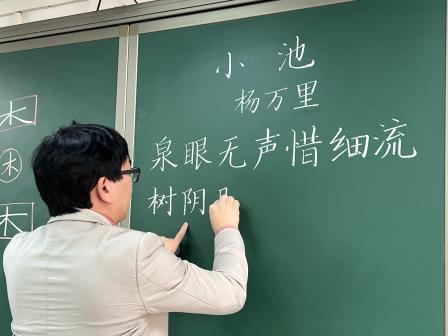 木
木
木
小池
杨万里
泉眼无声惜细流
树阴